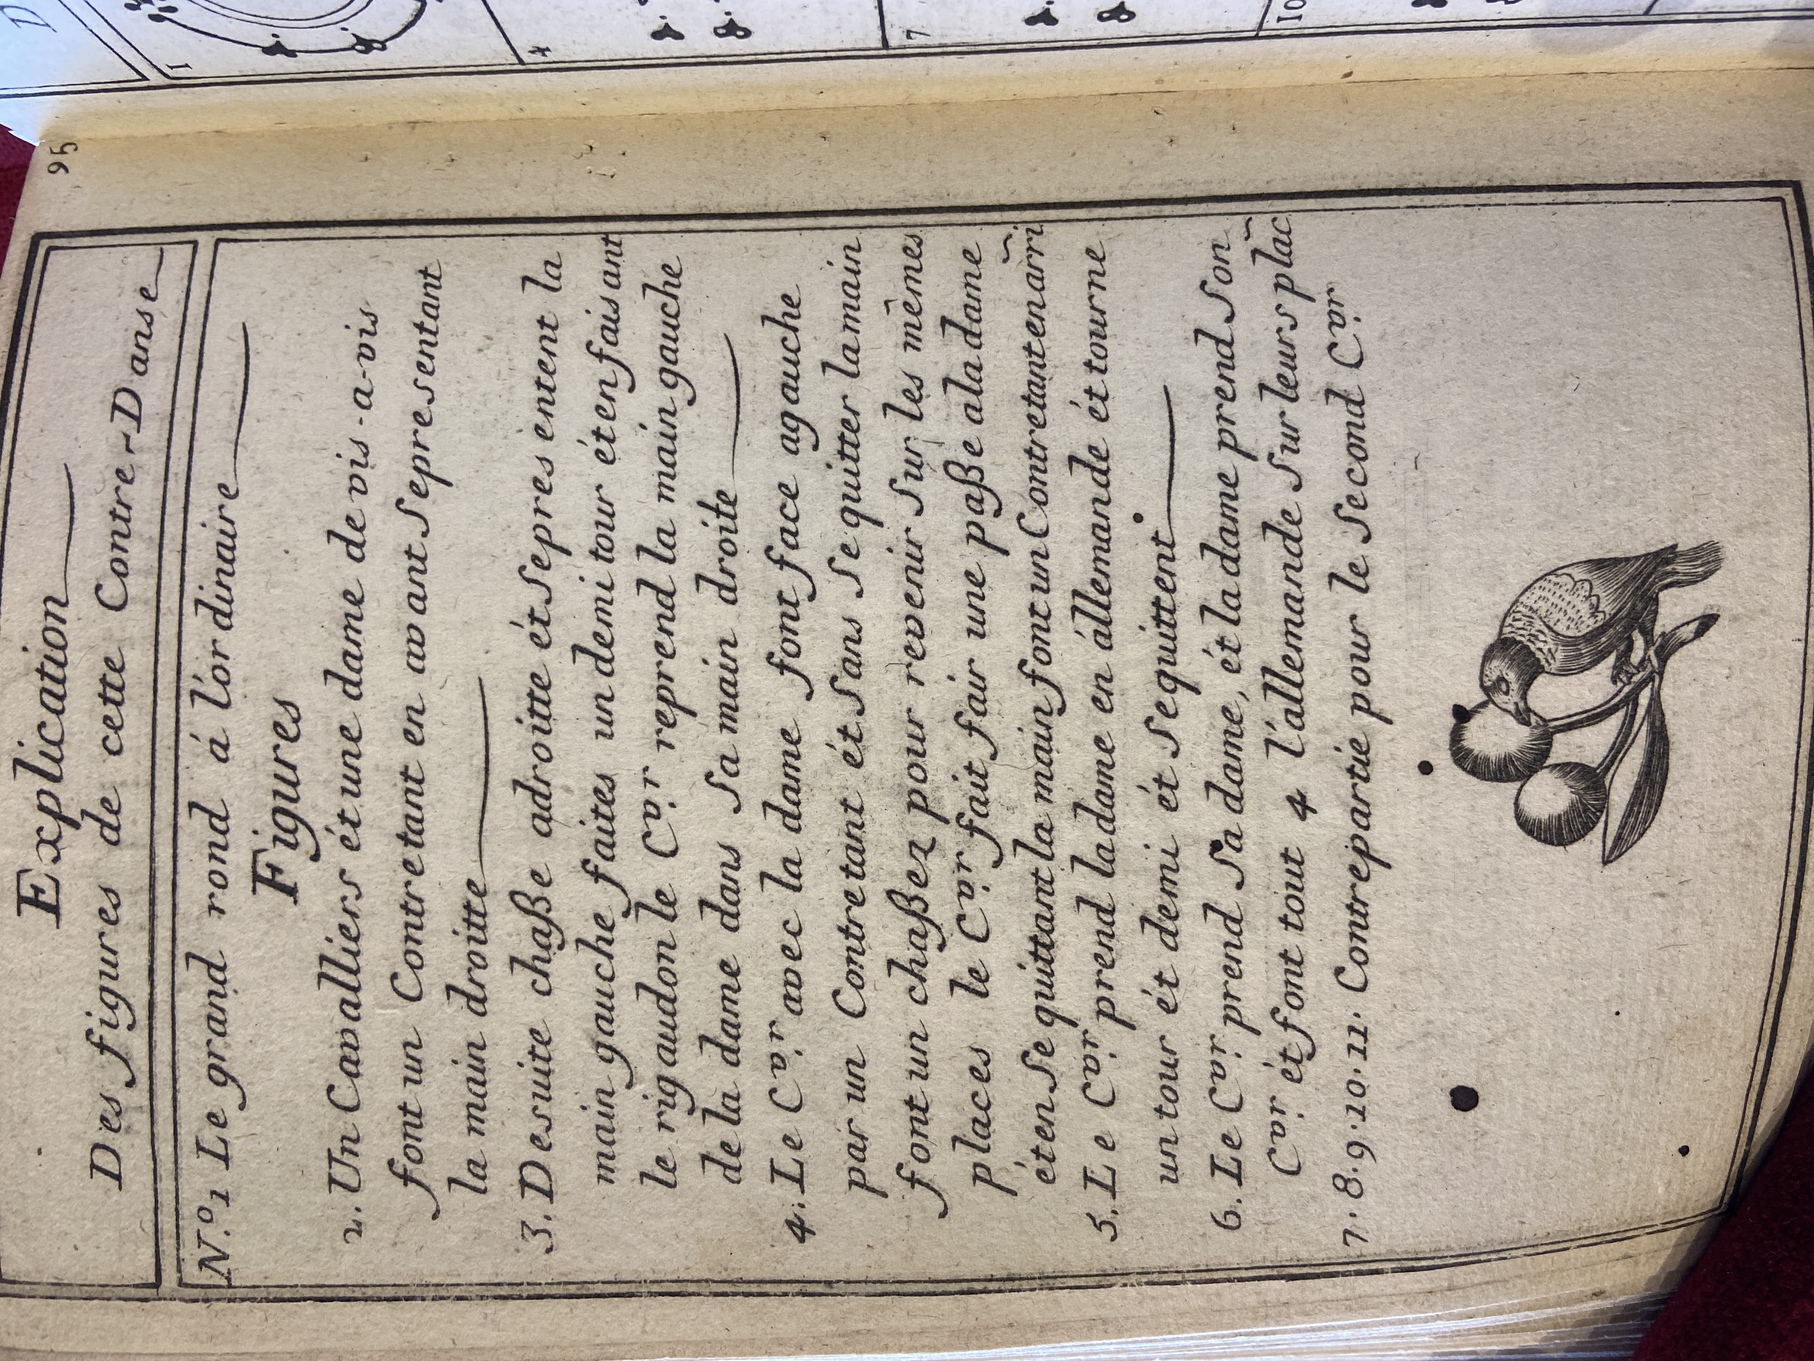 95
Explication
Des figures de cette Contre-Danse
N.º 1 Le grand rond á l'ordinaire
Figures
2. Un Cavalliers ét une dame de vis-a-vis
font un Contretant en avant Se presentant
la main droitte
3. De suite chaße a droitte ét Se presentent la
main gauche faites un demi tour ét en faisant
le rigaudon le Cvr. reprend la main gauche
de la dame dans Sa main droite
4. Le Cvr. avec la dame font face a gauche
par un Contretant ét Sans Se quitter la main
font un chaßez pour revenir Sur les mêmes
places le Cvr. fait fair une paße a la dame
ét en Se quittant la main font un Contretant en arri~
5. Le Cvr. prend la dame en állemande ét tourne
un tour ét demi ét Se quittent
6. Le Cvr. prend Sa dame, ét la dame prend Son
Cvr. ét font tout 4 l'allemande Sur leurs plac~
7. 8. 9. 10. 11. Contrepartie pour le Second Cvr.
D
1
4
7
10